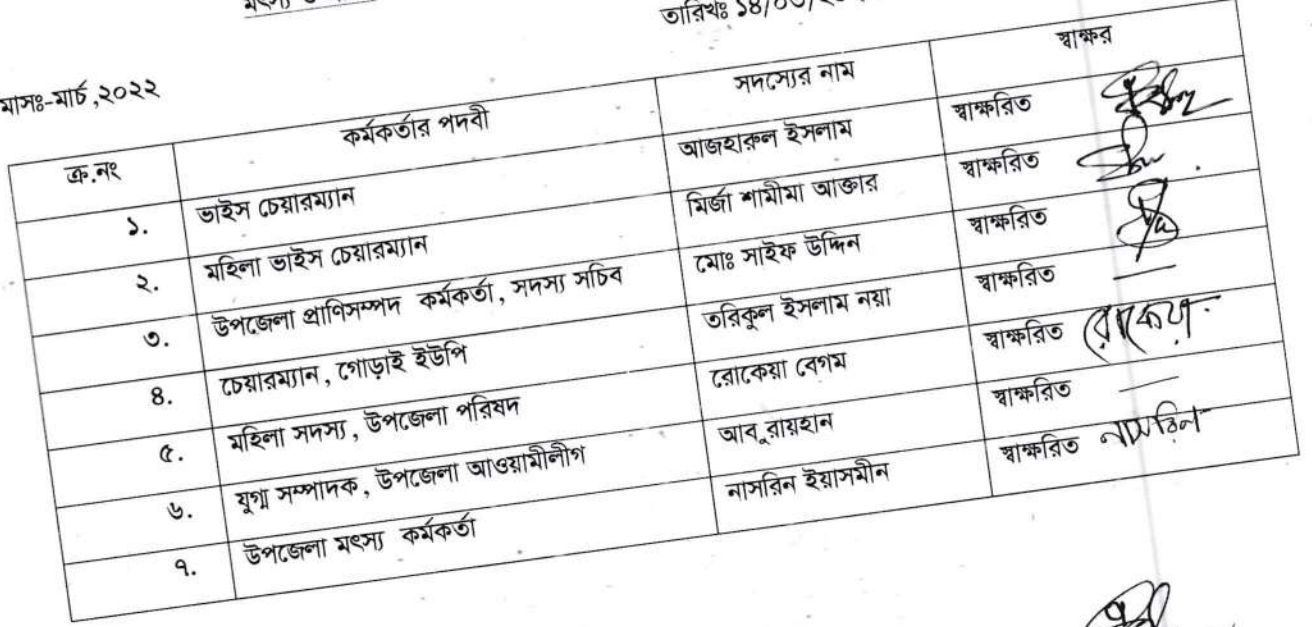 তারিখঃ ১৪/০৩/২০
মাসঃ-মার্চ,২০২২
ক্র.নং কর্মকর্তার পদবী সদস্যের নাম স্বাক্ষর
১. ভাইস চেয়ারম্যান আজহারুল ইসলাম স্বাক্ষরিত
২. মহিলা ভাইস চেয়ারম্যান মির্জা শামীমা আক্তার স্বাক্ষরিত
৩. উপজেলা প্রাণিসম্পদ কর্মকর্তা, সদস্য সচিব মোঃ সাইফ উদ্দিন স্বাক্ষরিত
৪. চেয়ারম্যান, গোড়াই ইউপি তরিকুল ইসলাম নয়া স্বাক্ষরিত
৫. মহিলা সদস্য, উপজেলা পরিষদ রোকেয়া বেগম স্বাক্ষরিত রোকেয়া
৬. যুগ্ম সম্পাদক, উপজেলা আওয়ামীলীগ আবু রায়হান স্বাক্ষরিত
৭. উপজেলা মৎস্য কর্মকর্তা নাসরিন ইয়াসমীন স্বাক্ষরিত নাসরিন